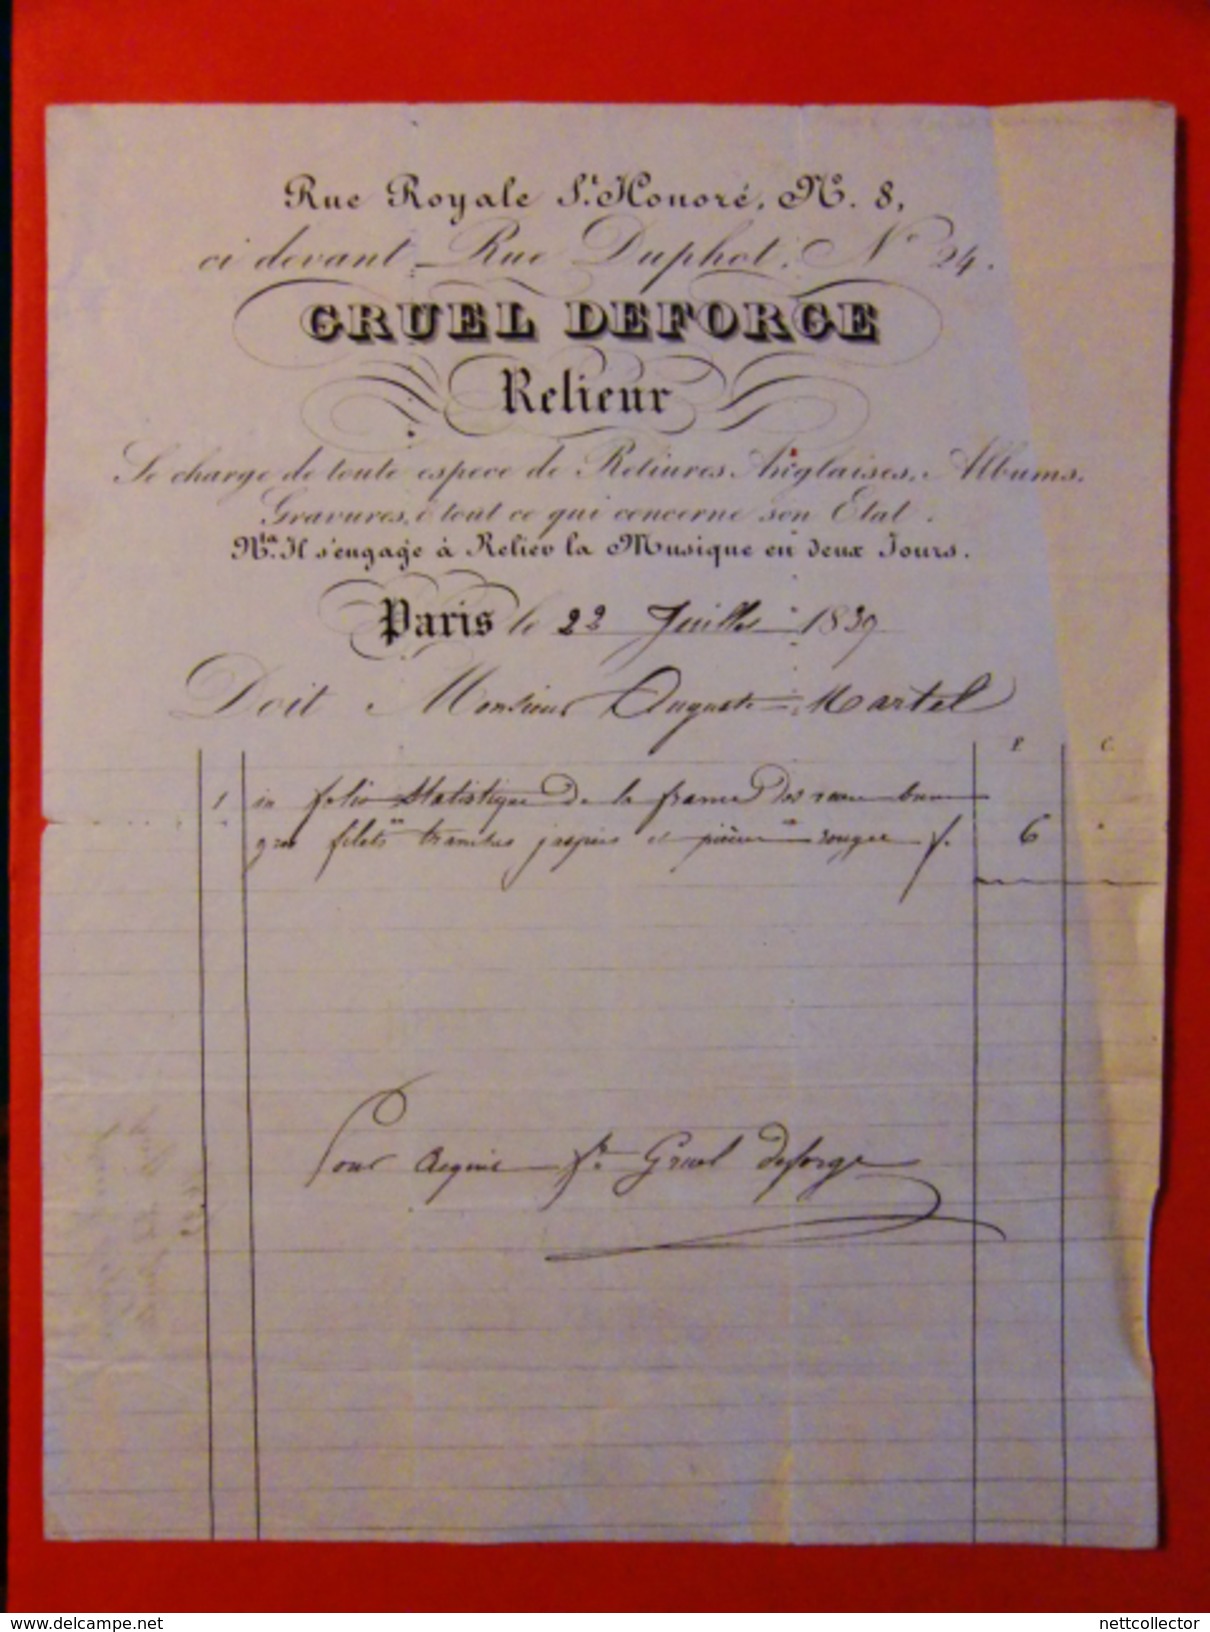 Rue Royale St. Honoré, No. 8,
ci devant Rue Duphot, No 24.
GRUEL DEFORGE
Relieur
Se charge de toute espece de Reliures Anglaises, Albums,
Gravures, & tout ce qui concerne son Etat.
Nta. Il s'engage à Relier la Musique en deux Jours.
Paris le 22 Juillet 1839
Doit Monsieur Auguste Martel
F. C.
1 in folio Statistique de la france Dos veau brun
gros filets tranches jaspées et pièces rouges f. 6 "
Pour Acquit Gruel deforge
delcampe.net
nettcollector